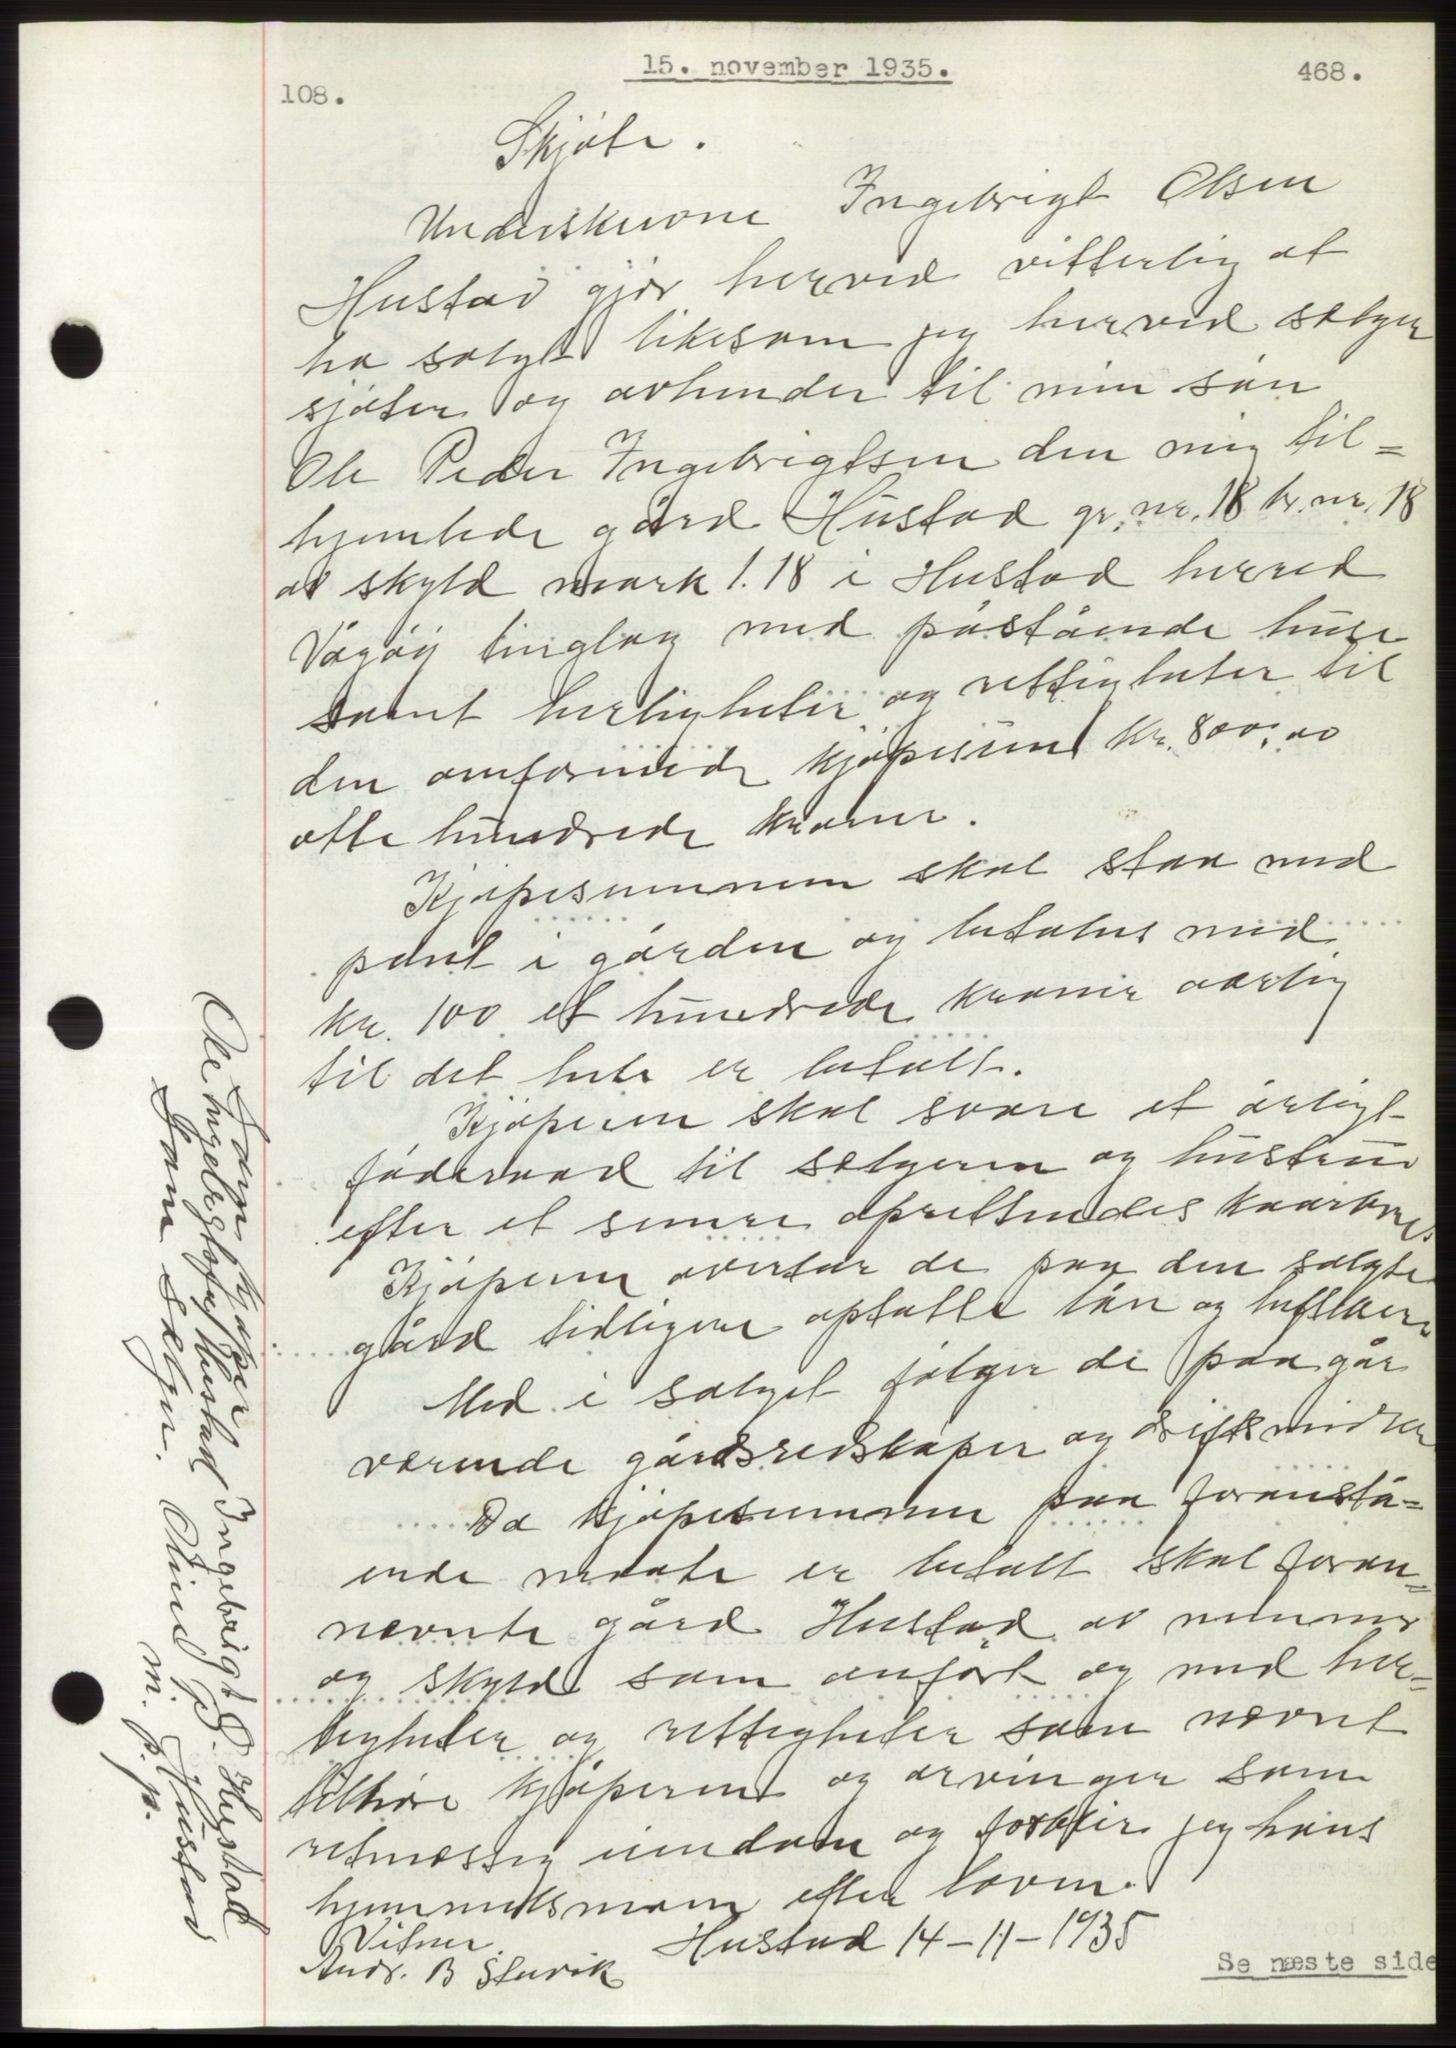 15. november 1935.
468.
108.
Skjöte.
Underskrevne Ingebrigt Olsen
Hustad gjör herved vitterlig at
ha solgt likesom jeg herved selger
sjöter og avhender til min sön
Ole Peder Ingebrigtsen den mig til=
hjemlede gård Hustad gr. nr. 18 br. nr. 18
av skyld mark 1.18 i Hustad herred
Vågöy tinglag med påstående huse
samt herligheter og rettigheter til
den omforenede kjöpesum kr. 800,00
otte hundrede kroner.
Kjöpesummen skal staa med
pant i gården og betales med
kr. 100 et hundrede kroner aarlig
til det hele er betalt.
Kjöperen skal svare et årligt
föderaad til selgeren og hustru
efter et senere oprettendes kaarbrev
Kjöperen overtar de paa den solgte
gård tidligere optatte lån og heftelser
Med i salget fölger de paa går
værende gårdsredskaper og driftsmidler
Da kjöpesummen paa foranstå=
ende maate er betalt skal foran=
nevnte gård Hustad av nummer
og skyld som anfört og med her=
ligheter og rettigheter som nevnt
tilhöre kjöperen og arvinger som
retmessig eiendom og forblir jeg hans
hjemmelsmann efter loven.
Hustad 14-11-1935
Vitner.
Andr. B Stavik
Som kjöper
Ole Ingebrigtsen Hustad
Som selger.
Ingebrigt O. Hustad
Olind P. Hustad
m. p. p.
Se næste side